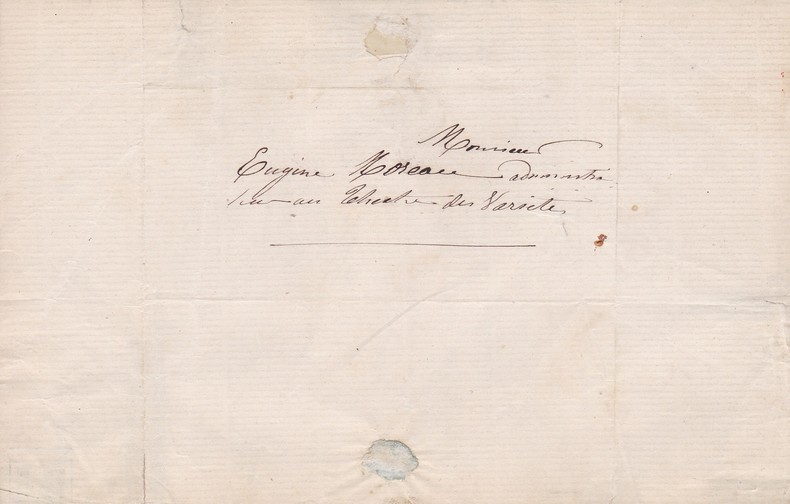 Monsieur
Eugène Moreau administra-
teur au Théatre des Varietés